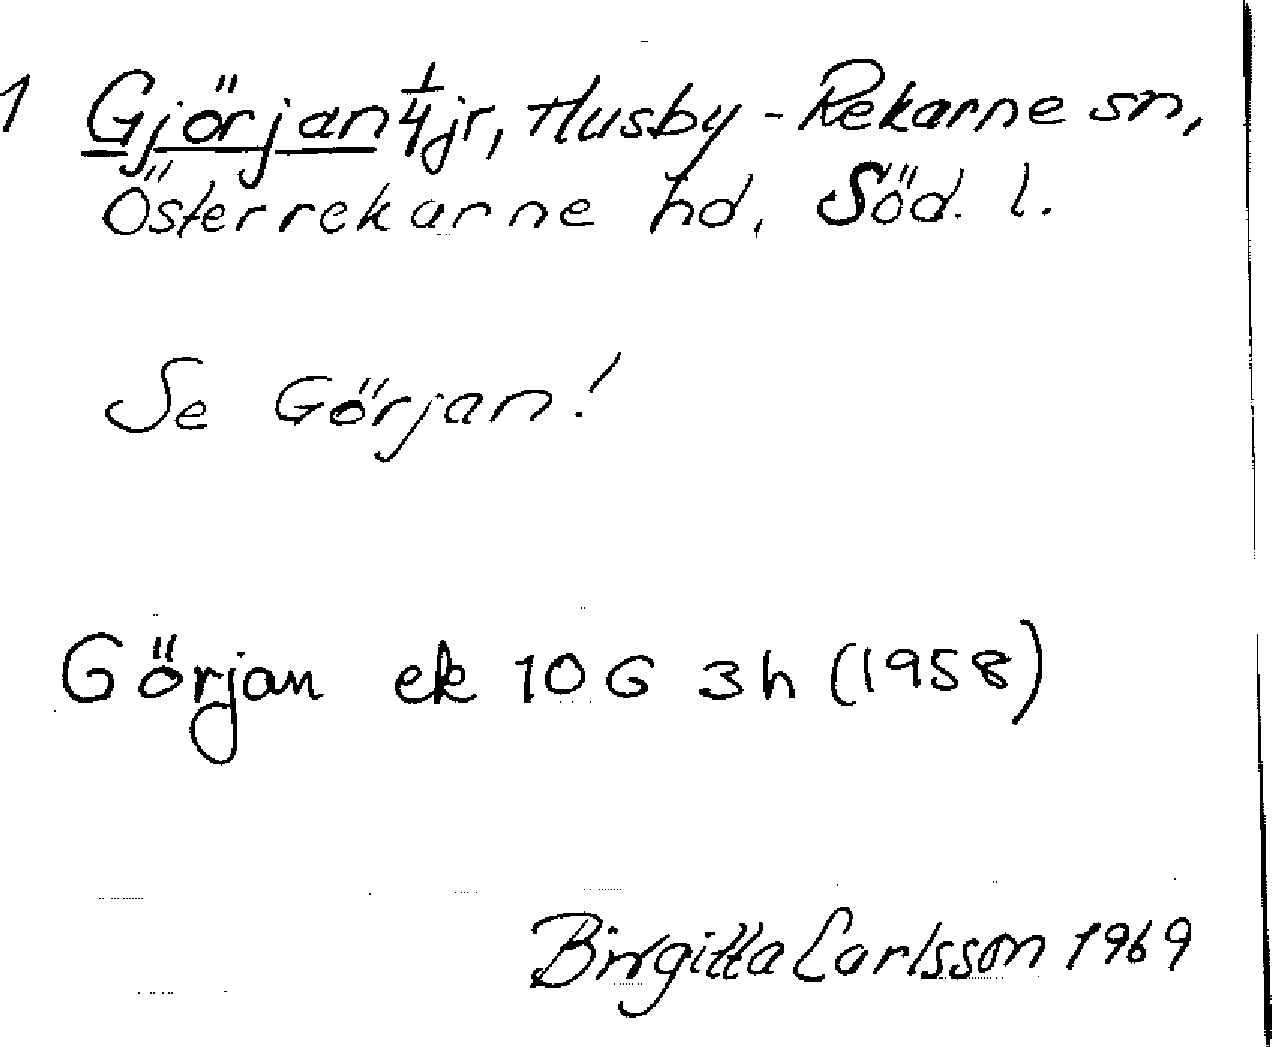 1 Gjörjan 1/4 jr, Husby-Rekarne sn,
Österrekarne hd, Söd. l.
Se Görjan!
Görjan ek 10G 3h (1958)
Birgitta Carlsson 1969